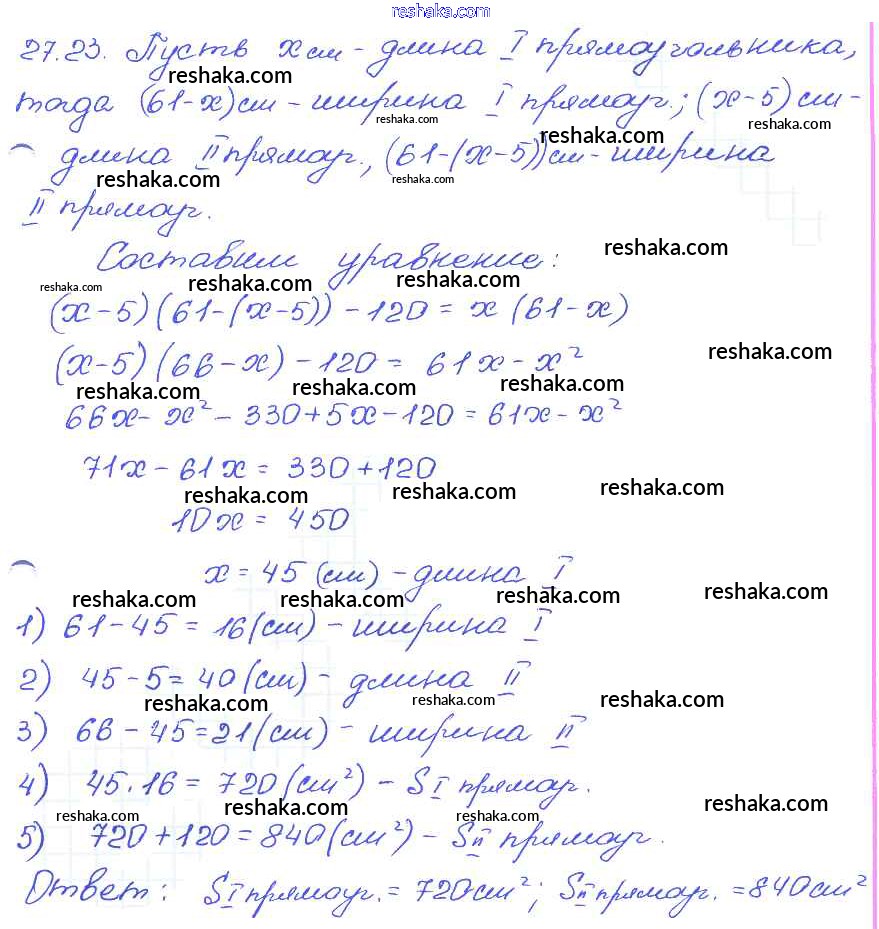 reshaka.com
27.23. Пусть x см - длина I прямоугольника,
reshaka.com reshaka.com
тогда (61-x) см - ширина I прямоуг.; (x-5) см -
reshaka.com reshaka.com reshaka.com
длина II прямоуг., (61-(x-5)) см - ширина
reshaka.com reshaka.com
II прямоуг.
Составим уравнение: reshaka.com
reshaka.com reshaka.com reshaka.com
(x-5)(61-(x-5)) - 120 = x (61-x)
(x-5)(66-x) - 120 = 61x - x² reshaka.com
reshaka.com reshaka.com reshaka.com
66x - x² - 330 + 5x - 120 = 61x - x²
71x - 61x = 330 + 120
reshaka.com reshaka.com reshaka.com
10x = 450
x = 45 (см) - длина I
reshaka.com reshaka.com reshaka.com reshaka.com
1) 61 - 45 = 16 (см) - ширина I
2) 45 - 5 = 40 (см) - длина II
reshaka.com reshaka.com reshaka.com
3) 66 - 45 = 21 (см) - ширина II
4) 45 · 16 = 720 (см²) - S I прямоуг.
reshaka.com reshaka.com reshaka.com reshaka.com
5) 720 + 120 = 840 (см²) - S II прямоуг.
Ответ: S I прямоуг. = 720 см²; S II прямоуг. = 840 см²
reshaka.com reshaka.com reshaka.com